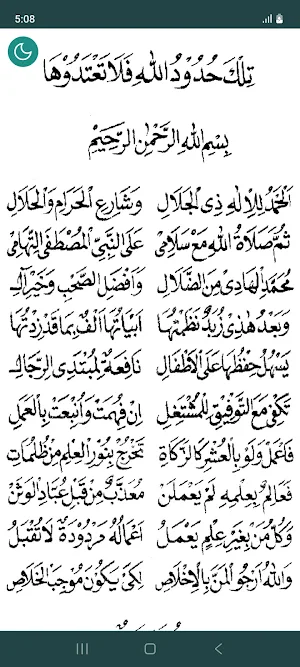 5:08
تِلْكَ حُدُوْدُ اللهِ فَلَا تَعْتَدُوْهَا
بِسْمِ اللهِ الرَّحْمٰنِ الرَّحِيْمِ
اَلْحَمْدُ لِلْإِلٰهِ ذِى الْجَلَالِ وَشَارِعِ الْحَرَامِ وَالْحَلَالِ
ثُمَّ صَلَاةُ اللهِ مَعْ سَلَامِى عَلَى النَّبِيِّ الْمُصْطَفَى التِّهَامِى
مُحَمَّدِ الْهَادِى مِنَ الضَّلَالِ وَاَفْضَلِ الصَّحْبِ وَخَيْرِ آلِ
وَبَعْدُ هٰذِى زُبَدٌ نَظَمْتُهَا اَبْيَاتُهَا اَلْفٌ بِمَا قَدْ زِدْتُهَا
يَسْهُلُ حِفْظُهَا عَلَى الْاَطْفَالِ نَافِعَةٌ لِمُبْتَدِى الرِّجَالِ
تَكْفِى مَعَ التَّوْفِيْقِ لِلْمُشْتَغِلِ اِنْ فُهِمَتْ وَاُتْبِعَتْ بِالْعَمَلِ
فَاعْمَلْ وَلَوْ بِالْعُشْرِ كَالزَّكَاةِ تَخْرُجْ بِنُوْرِ الْعِلْمِ مِنْ ظُلُمَاتِ
فَعَالِمٌ بِعِلْمِهِ لَمْ يَعْمَلَنْ مُعَذَّبٌ مِنْ قَبْلِ عُبَّادِ الْوَثَنْ
وَكُلُّ مَنْ بِغَيْرِ عِلْمٍ يَعْمَلُ اَعْمَالُهُ مَرْدُوْدَةٌ لَا تُقْبَلُ
وَاللهَ اَرْجُو الْمَنَّ بِالْاِخْلَاصِ لِكَىْ يَكُوْنَ مُوْجِبَ الْخَلَاصِ